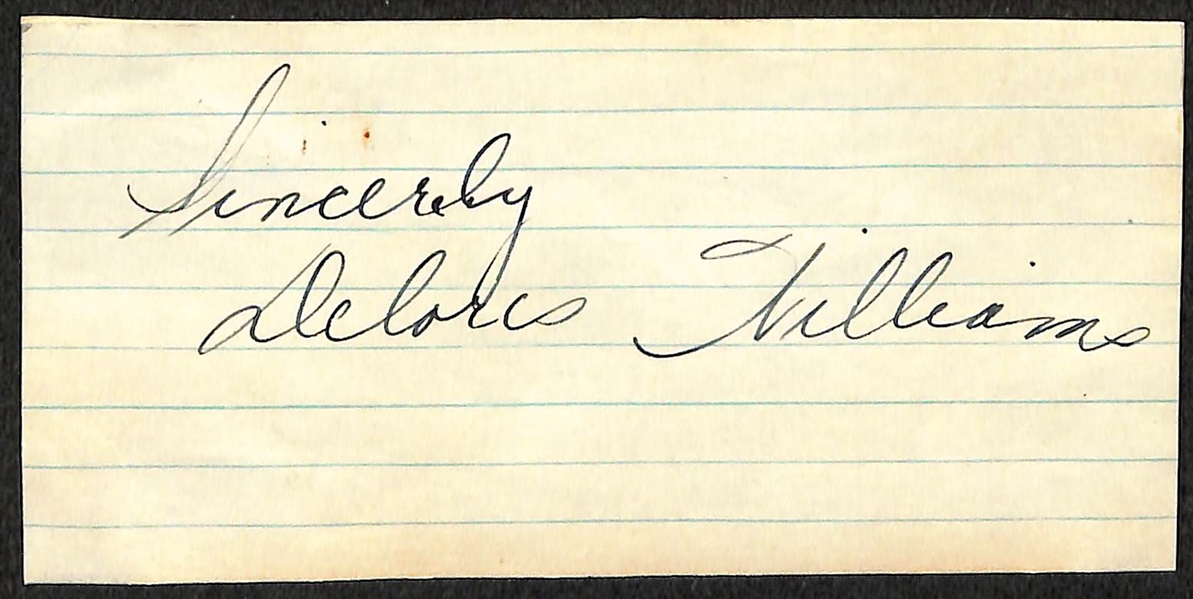 Sincerely
Deloris Williams